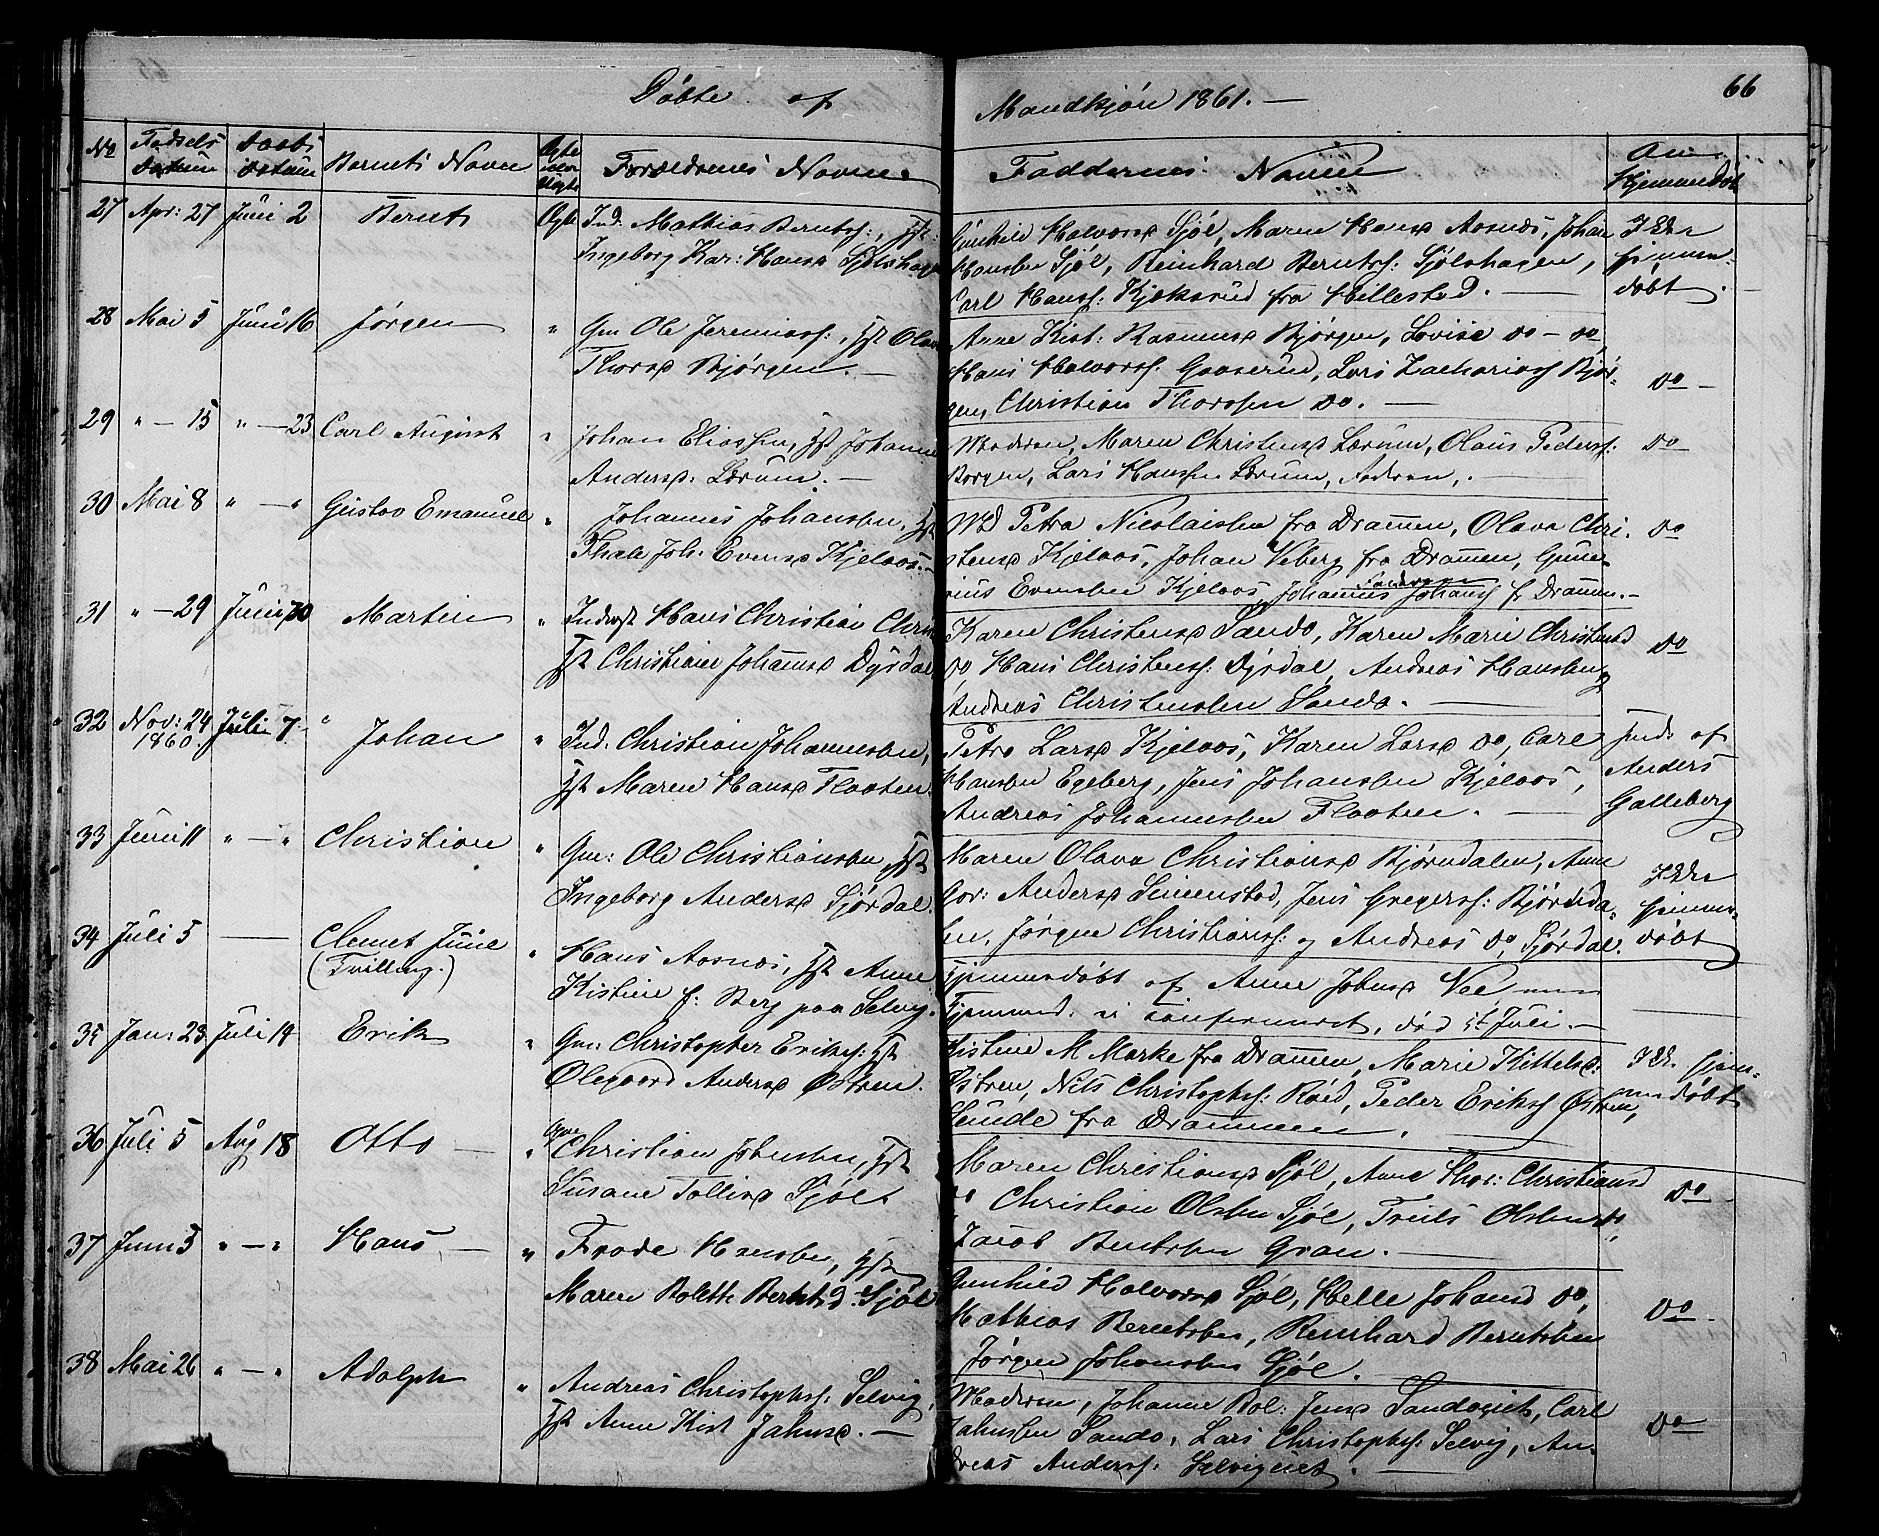 66
Døbte af Mandkjøn 1861. —
No Fødsels Datum Daabs Datum Barnets Navn Ægte eller Uægte Forældrenes Navne Faddernes Navne Om Hjemmedøbt
27 Apr: 27 Juni 2 Bernt Ægte Ind. Mathias Berntss:,
Ingeborg Kar: Hansd
Gunhild Halvorsd Sjøl, Maren Hansd Aasnæs, Johan
Hansen Sjøl, Reinhard Berntss: Sjølshagen,
Carl Hanss: Kjeksrud fra Hillestad. —
Ikke
hjemme-
døbt
28 Mai 5 Juni 16 Jørgen " Gm Ole Jeremiass:,
Thorsd Bjørgen. —
Anne Kist: Rasmusd Bjørgen, Lovise do — do
Hans Halvorss: Gaaserud, Lars Zachariass Bjør-
gen, Christian Thorssen do. —
do —
29 " — 15 " — 23 Carl August " Johan Eliassen, Johanne
Andersd: Lærum. —
Moderen, Maren Christensd Lærum, Olaus Pederss:
Borgen, Lars Hanssen Lærum, Faderen. —
do
30 Mai 8 " — " Gustav Emanuel " Johannes Johansen,
Thale Joh: Evensd Kjelaas. —
Petra Nicolaisen fra Dramen, Olava Chri-
stensd Kjelaas, Johan Veberg fra Dramen, Gune-
rius Evensen Kjelaas, Faderen Johannes Johanss fr Dramen. —
do
31 " — 29 Juni 30 Martin " Inderst Hans Christian
Christine Johannsd Dysdal
Karen Christensd Sando, Karen Marie Christensd
do Hans Christenss: Dysdal, Andreas Hansen
Andreas Christensen Sando. —
do
32 Nov: 24 1860. Juli 7. Johan " Ind. Christian Johannesen,
Maren Hansd Flaaten
Petra Larsd Kjelaas, Karen Larsd do, Carl
Hansen Egeberg, Jens Johansen Kjelaas,
Andreas Johannesen Flaaten. —
af
Anders
Galleberg
33 Juni 11 " — " Christian " Gm: Ole Christiansen
Ingeborg Andersd Sjørdal.
Maren Olava Christiansd Bjørndalen, Anne
Gor: Andersd Simenstad, Jens Gregerss: Bjørnda-
len, Jørgen Christianss: og Andreas do Sjørdal.
Ikke
hjemme-
døbt
34 Juli 5 — Clemet Juul " Hans Aasnæs, Anne
(Tvilling.) Kistine f: Berg paa Selvig.
Hjemmedøbt af Anne Johnsd Nee
Hjemmed. ei confirmeret, død 5te Juli. —
35 Jan: 23 Juli 14 Erik " Gm: Christopher Erikss:
Olegaard Andersd Østren.
Kistine M Marke fra Dramen, Marie Kittelsd:
Østren, Nils Christophss: Røed, Peder Erikss Østren,
Sende fra Drammen. —
Ikke hjem-
medøbt
36 Juli 5 Aug 18 Otto — " Gm Christian Johnsen,
Susane Tollefsd Sjøl
Maren Christiansd Sjøl, Anne Thor: Christiansd
do Christian Olsen Sjøl, Truls Olsen do,
Jacob Bentsen Gran. —
do
37 Juni 5 " — " Hans — " Frode Hansen,
Maren Bolette Berntsd. Sjøl
Gunhild Halvorsd Sjøl, Helle Johansd do,
Mathias Berntsen, Reinhard Berntsen
Jørgen Johansen Sjøl.
do —
38 Mai 26 " — " Adolph " Andreas Christophss: Selvig,
Anne Kist Jahnsd. —
Moderen, Johanne Bol: Jensd Sandagiet, Carl
Jahnsen Sando, Lars Christophss: Selvig, An-
dreas Anderss: Selvigeiet. —
do